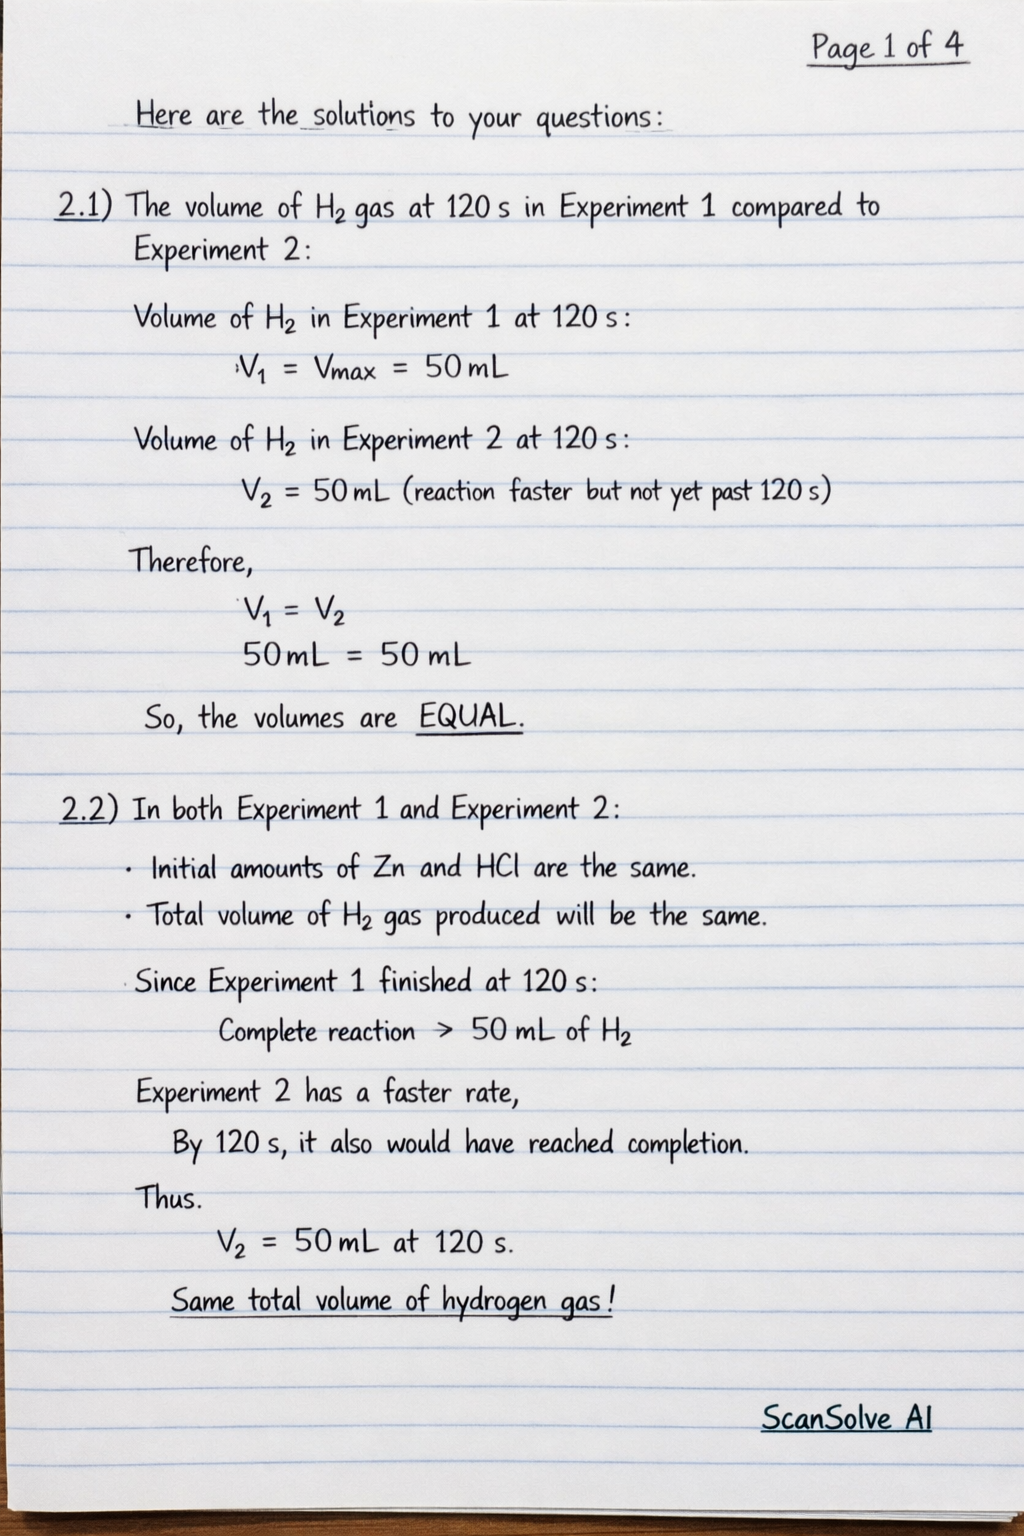 Page 1 of 4
Here are the solutions to your questions:
2.1) The volume of H₂ gas at 120 s in Experiment 1 compared to
Experiment 2:
Volume of H₂ in Experiment 1 at 120 s:
V₁ = Vmax = 50 mL
Volume of H₂ in Experiment 2 at 120 s:
V₂ = 50 mL (reaction faster but not yet past 120 s)
Therefore,
V₁ = V₂
50 mL = 50 mL
So, the volumes are EQUAL.
2.2) In both Experiment 1 and Experiment 2:
· Initial amounts of Zn and HCl are the same.
· Total volume of H₂ gas produced will be the same.
Since Experiment 1 finished at 120 s:
Complete reaction > 50 mL of H₂
Experiment 2 has a faster rate,
By 120 s, it also would have reached completion.
Thus.
V₂ = 50 mL at 120 s.
Same total volume of hydrogen gas!
ScanSolve AI